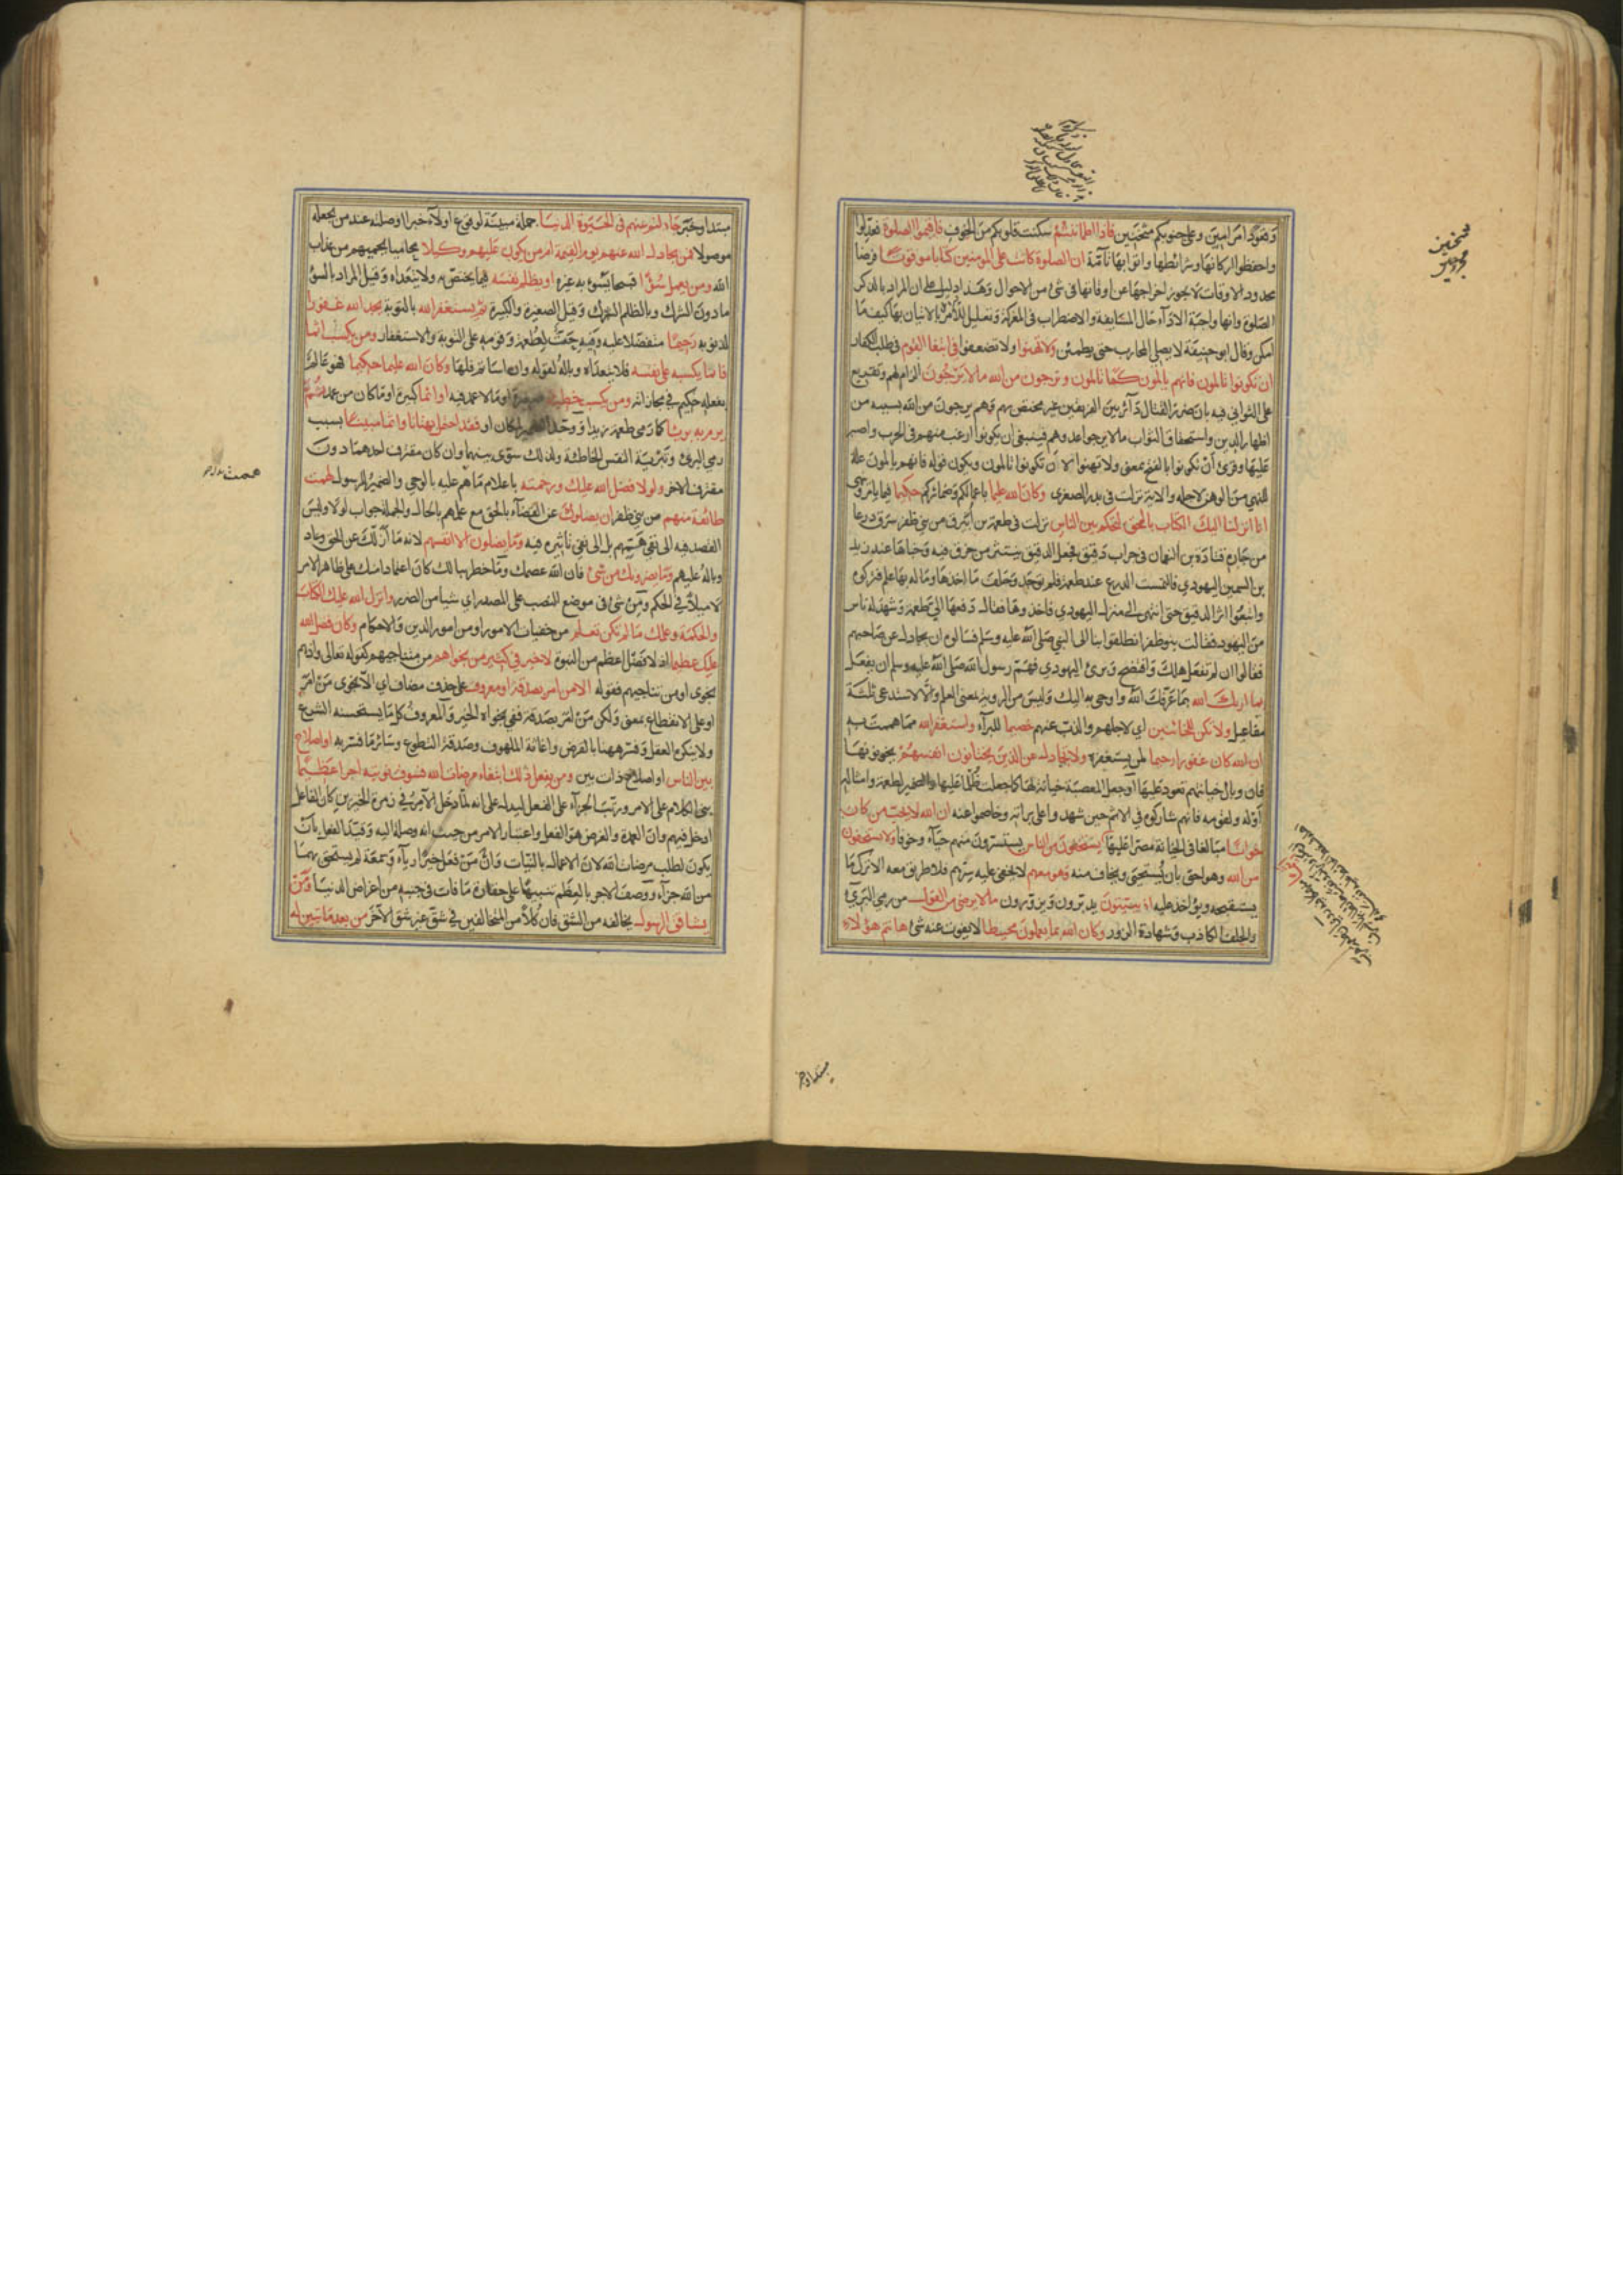 وقعودا مرامين وعلى جنوبكم مثخنين فاذا اطماننتم سكنت قلوبكم من الخوف فاقيموا الصلوة فعدلوا
واحفظوا اركانها وشرائطها واتوا بها تامة ان الصلوة كانت على المؤمنين كتابا موقوتا فرضا
محدود الاوقات لا يجوز اخراجها عن اوقاتها في شئ من الاحوال وهذا دليل على ان المراد بالذكر
الصلوة وانها واجبة الاداء حال المسايفة والاضطراب في المعركة وتعليل للامر بالاتيان بها كيف ما
امكن وقال ابو حنيفة لا يصلي المحارب حتى يطمئن ولا تهنوا ولا تضعفوا في ابتغا القوم في طلب الكفار
ان تكونوا تالمون فانهم يالمون كما تالمون وترجون من الله ما لا يرجون الزام لهم وتقريع
على التواني فيه بان ضرر القتال دائر بين الفريقين غير مختص بهم وهم يرجون من الله بسببه من
اظهار الدين واستحقاق الثواب ما لا يرجو اعدوهم فينبغي ان يكونوا ارغب منهم في الحرب واصبر
عليها وقرئ ان تكونوا بالفتح بمعنى ولا تهنوا لان تكونوا تالمون ويكون قوله فانهم يالمون علة
للنهي من الوهن لاجله والاية نزلت في بدر الصغرى وكان الله عليما باعمالكم وضمائركم حكيما فيما يامر وينهى
انا انزلنا اليك الكتاب بالحق لتحكم بين الناس نزلت في طعمة بن ابيرق من بني ظفر سرق درعا
من جاره قتادة بن النعمان في جراب دقيق فجعل الدقيق ينتثر من خرق فيه وخباها عند زيد
بن السمين اليهودي فالتمست الدرع عند طعمة فلم توجد وحلف ما اخذها وما له بها علم فتركوه
واتبعوا اثر الدقيق حتى انتهى الى منزل اليهودي فاخذوها فقال دفعها الي طعمة وشهد له ناس
من اليهود فقالت بنو ظفر انطلقوا بنا الى النبي صلى الله عليه وسلم فسالوه ان يجادل عن صاحبهم
فقالوا ان لم تفعل هلك وافتضح وبرئ اليهودي فهم رسول الله صلى الله عليه وسلم ان يفعل
بما اريك الله بما عرفك الله واوحى به اليك وليس من الروية بمعنى العلم والا لاستدعى ثلثة
مفاعيل ولا تكن للخائنين اي لاجلهم والذب عنهم خصيما للبرآء واستغفر الله مما هممت به
ان الله كان غفورا رحيما لمن يستغفره ولا تجادل عن الذين يختانون انفسهم يخونونها
فان وبال خيانتهم تعود عليها او جعل المعصية خيانة لها كما جعلت ظلما عليها والضمير لطعمة وامثاله
او له ولقومه فانهم شاركوه في الاثم حين شهدوا على براته وخاصموا عنه ان الله لا يحب من كان
خوانا مبالغا في الخيانة مصرا عليها يستخفون من الناس يستترون منهم حياء وخوفا ولا يستخفون
من الله وهو احق بان يستحيى ويخاف منه وهو معهم لا يخفى عليه سرهم فلا طريق معه الا ترك ما
يستقبحه ويؤاخذ عليه اذ يبيتون يدبرون ويزورون ما لا يرضى من القول من رمي البري
والحلف الكاذب وشهادة الزور وكان الله بما يعملون محيطا لا يفوت عنه شئ ها انتم هؤلاء
مبتدا وخبر جادلتم عنهم في الحيوة الدنيا جملة مبينة لوقوع اولاء خبرا او صلة عند من يجعله
موصولا فمن يجادل الله عنهم يوم القيمة ام من يكون عليهم وكيلا محاميا يحميهم من عذاب
الله ومن يعمل سوءا قبيحا يسوء به غيره او يظلم نفسه بما يختص به ولا يتعداه وقيل المراد بالسوء
ما دون الشرك وبالظلم الشرك وقيل الصغيرة والكبيرة ثم يستغفر الله بالتوبة يجد الله غفورا
لذنوبه رحيما متفضلا عليه وفيه حث لطعمة وقومه على التوبة والاستغفار ومن يكسب اثما
فانما يكسبه على نفسه فلا يتعداه وباله لقوله وان اساتم فلها وكان الله عليما حكيما فهو عالم
بفعله حكيم في مجازاته ومن يكسب خطيئة صغيرة او ما لا عمد فيه او اثما كبيرة او ما كان من عمد ثم
يرم به بريئا كما رمى طعمة زيدا ووحد الضمير لمكان او فقد احتمل بهتانا واثما مبينا بسبب
رمي البرئ وتبرئة النفس الخاطئة ولذلك سوى بينهما وان كان مقترف احدهما دون
مقترف الاخر ولولا فضل الله عليك ورحمته باعلام ما هم عليه بالوحي والضمير للرسول لهمت
طائفة منهم من بني ظفر ان يضلوك عن القضاء بالحق مع علمهم بالحال والجملة جواب لولا وليس
القصد فيه الى نفي همتهم بل الى نفي تاثيره فيه وما يضلون الا انفسهم لانه ما ازلك عن الحق وعاد
وباله عليهم وما يضرونك من شئ فان الله عصمك وما خطر ببالك كان اعتمادا منك على ظاهر الامر
لا ميلا في الحكم ومن شئ في موضع النصب على المصدر اي شيا من الضرر وانزل الله عليك الكتاب
والحكمة وعلمك ما لم تكن تعلم من خفيات الامور او من امور الدين والاحكام وكان فضل الله
عليك عظيما اذ لا فضل اعظم من النبوة لا خير في كثير من نجواهم من متناجيهم كقوله تعالى واذ هم
نجوى او من تناجيهم فقوله الا من امر بصدقة او معروف على حذف مضاف اي الا نجوى من امر
او على الانقطاع بمعنى ولكن من امر بصدقة ففي نجواه الخير والمعروف كل ما يستحسنه الشرع
ولا ينكره العقل وفسر ههنا بالقرض واغاثة الملهوف وصدقة التطوع وسائر ما فسر به او اصلاح
بين الناس او اصلاح ذات بين ومن يفعل ذلك ابتغاء مرضات الله فسوف نؤتيه اجرا عظيما
بنى الكلام على الامر ورتب الجزاء على الفعل ليدل على انه لما دخل الامر في زمرة الخيرين كان الفاعل
ادخل فيهم وان العمدة والغرض هو الفعل واعتبار الامر من حيث انه وصلة اليه وقيد الفعل بان
يكون لطلب مرضات الله لان الاعمال بالنيات وان من فعل خيرا رياء وسمعة لم يستحق بهما
من الله جزاء ووصف الاجر بالعظم تنبيها على حقارة ما فات في جنبه من اغراض الدنيا ومن
يشاقق الرسول يخالفه من الشق فان كلا من المتخالفين في شق غير شق الاخر من بعد ما تبين له
مبتدا وخبر